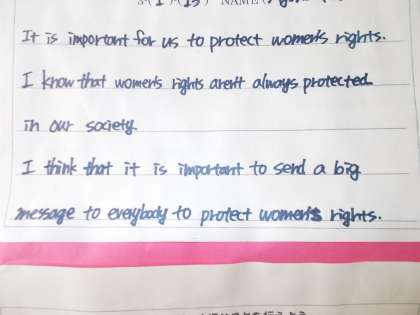 NAME
It is important for us to protect women's rights.
I know that women's rights aren't always protected
in our society.
I think that it is important to send a big
message to everybody to protect women's rights.